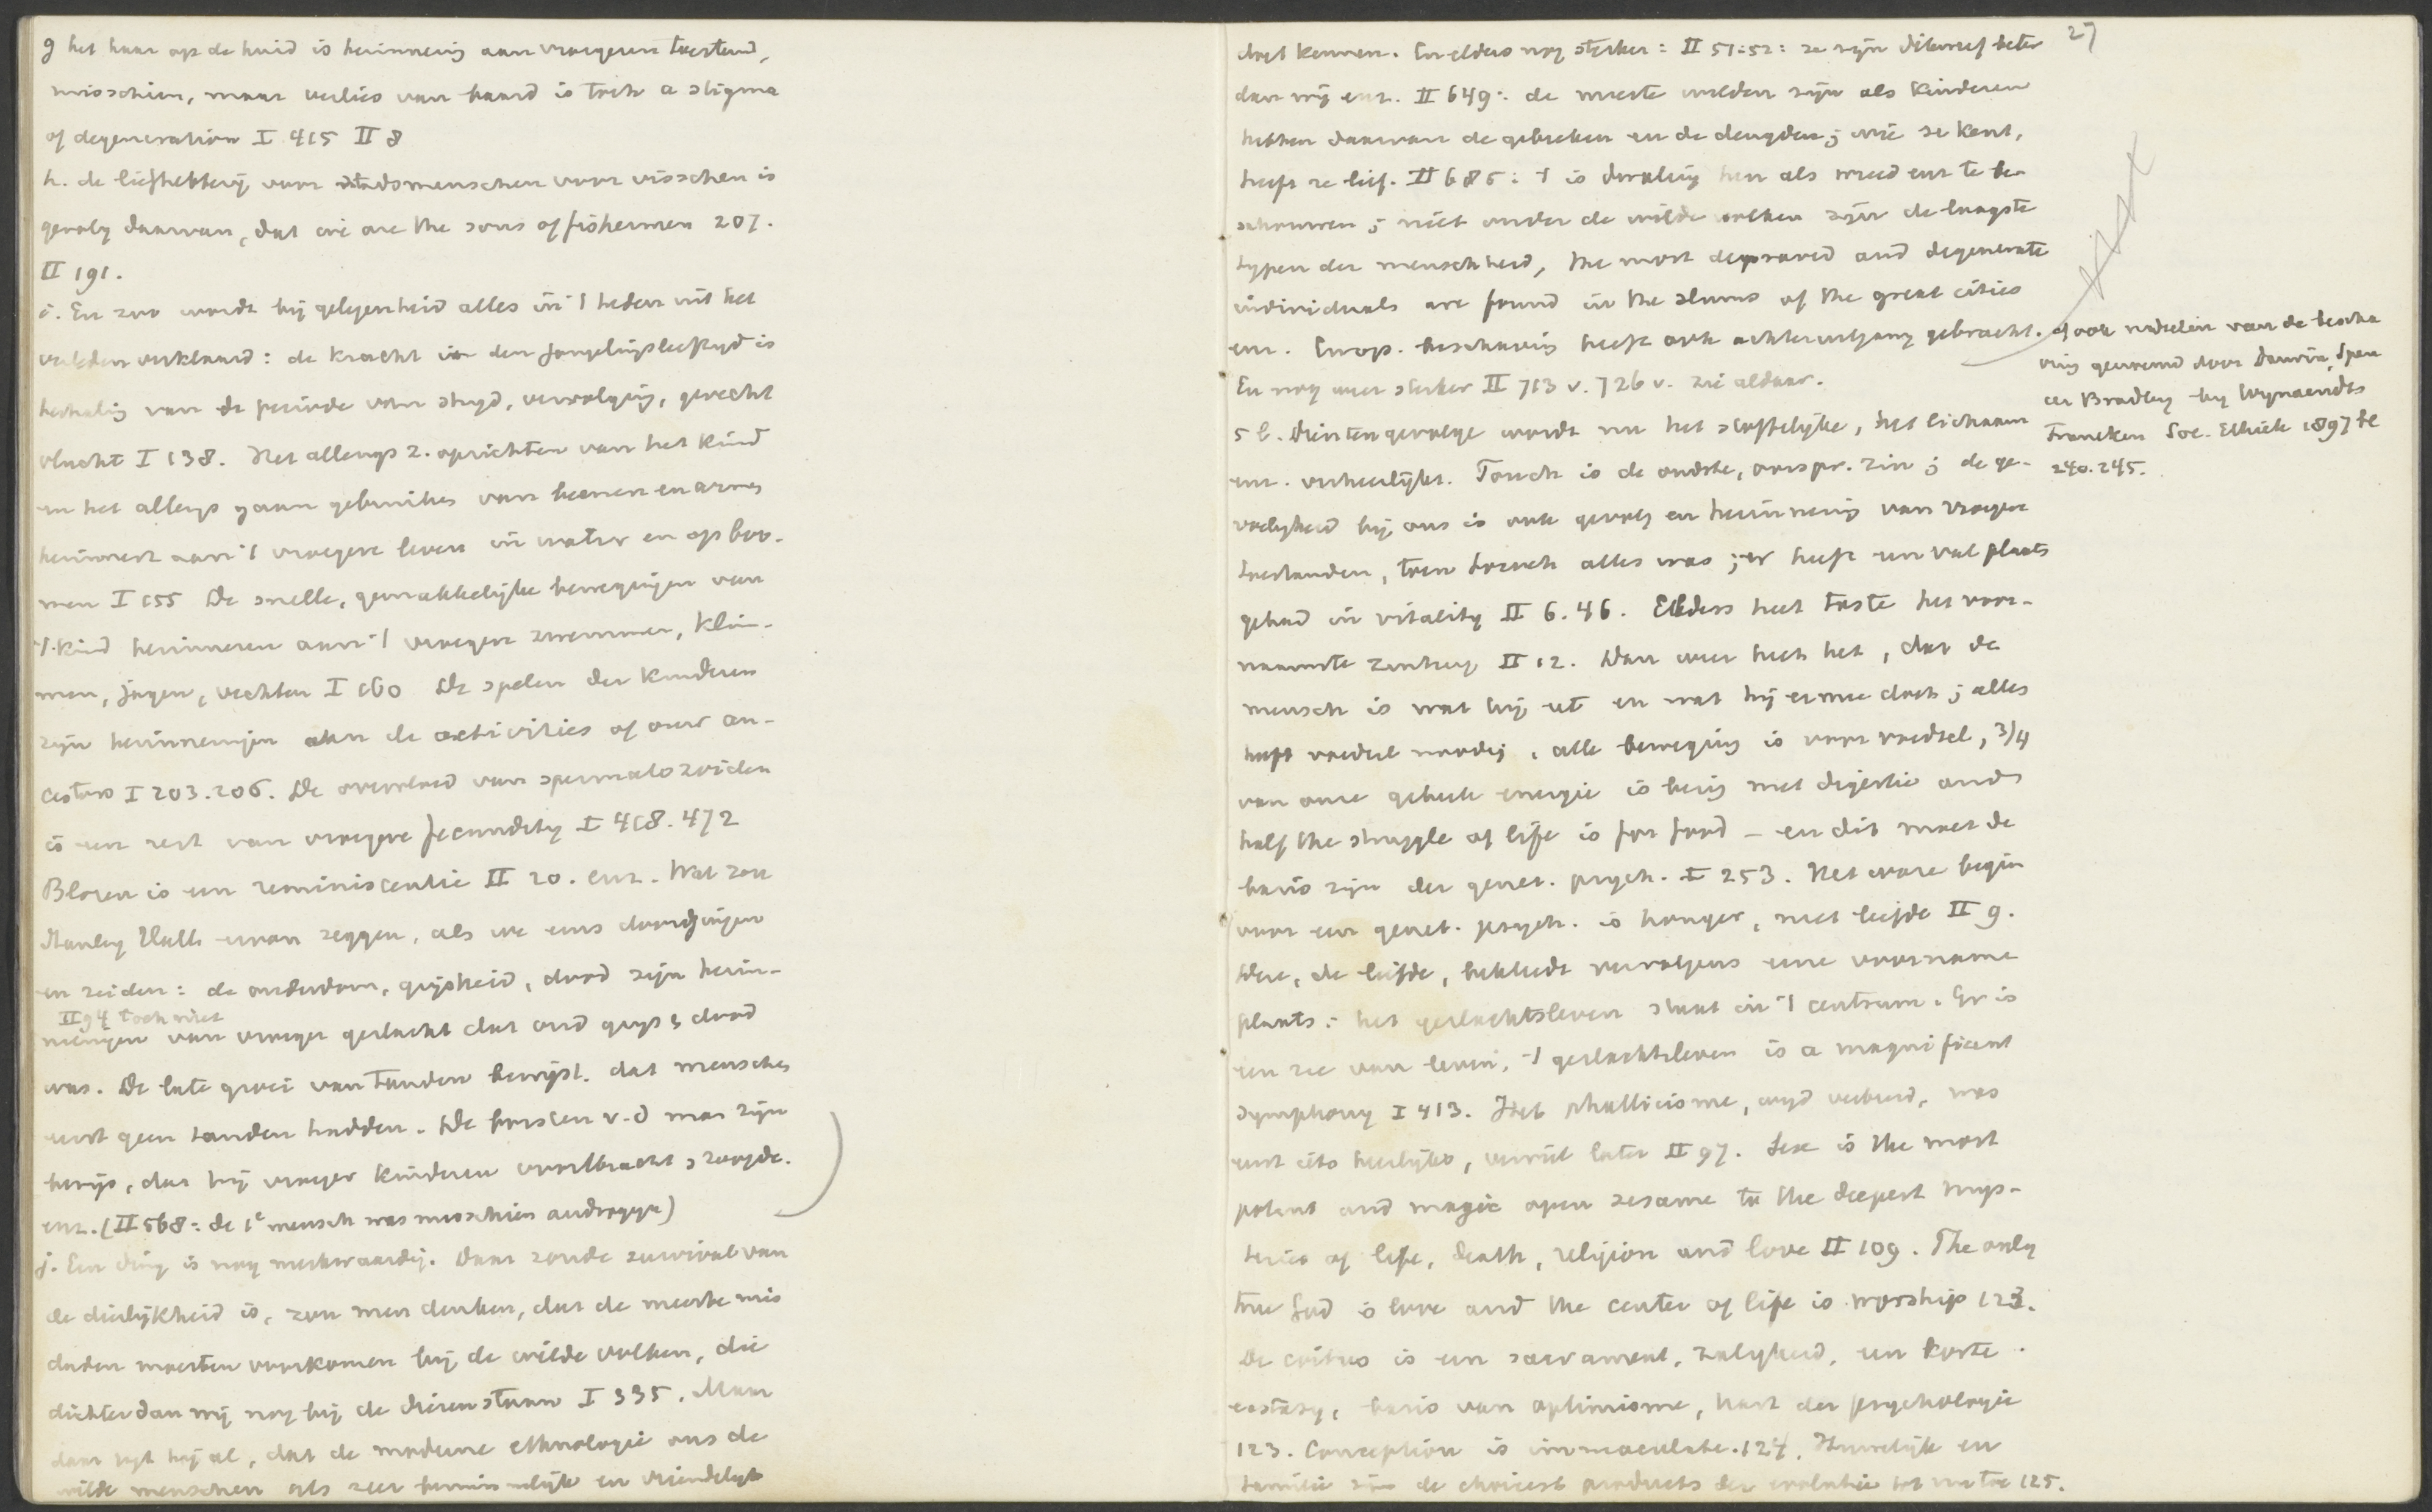 g het haar op de huid is herinnering aan vroegeren toestand,
misschien, maar verlies van baard is toch a stigma
of degeneration I 415 II 8
h. de liefhebberij voor stadsmenschen voor visschen is
gevolg daarvan, dat wie are the sons of fishermen 207.
II 191.
i. En zoo wordt bij gelegenheid alles in 't heden uit het
verleden verklaard: de kracht in den jongelingsleeftyd is
herhaling van de periode van stryd, vervolging, gevecht
vlucht I 138. Het allengs z. oprichten van het kind
en het allengs gaan gebruiken van beenen en armen
herinnert aan 't vroegere leven in water en op boo-
men I 155 De snelle, gemakkelijke bewegingen van
't kind herinneren aan 't vroegere zwemmen, klim-
men, jagen, vechten I 160 De spelen der kinderen
zijn herinneringen aan de activities of our an-
cestors I 203.206. De overvloed van spermatozoiden
is een rest van vroegere fecundity I 418.472
Blozen is een reminiscentie II 20. enz. Wat zou
Stanley Hall ervan zeggen, als we eens doorgingen
en zeiden: de ouderdom, grijsheid, dood zijn herin-
II 94 toch niet
neringen van vroeger geslacht dat oud grys & dood
was. De late groei van tanden bewijst. dat menschen
eerst geen tanden hadden. De borsten v.d man zijn
bewijs, dat hij vroeger kinderen voortbracht & zoogde.
enz. (II 568: de 1e mensch was misschien androgyn)
j. Een ding is nog merkwaardig. Daar zonde survival van
de dierlijkheid is, zou men denken, dat de meeste mis
daden moesten voorkomen bij de wilde volken, die
dichter dan wij nog bij de dieren staan I 335. Maar
daar zegt hij al, dat de moderne ethnologie ons de
wilde menschen als zeer beminnelijk en vriendelijk
27
doet kennen. En elders nog sterker: II 51:52: ze zijn dikwerf beter
dan wij enz. II 649: de meeste wilden zijn als kinderen
hebben daarvan de gebreken en de deugden; wie ze kent,
heeft ze lief. II 685: 't is dwaling hen als wreed enz te be-
schouwen; niet onder de wilde volken zijn de laagste
typen der menschheid, the most depraved and degenerate
individuals are found in the slums of the great cities
enz. Europ. beschaving heeft ook achteruitgang gebracht.
En nog weer sterker II 713 v. 726 v. zie aldaar.
ook nadeelen van de bescha
ving genoemd door Darwin, Spen
cer Bradley by Wynaendts
Francken Soc. Ethiek 1897 bl
240.245.
5 b. Dientengevolge wordt nu het stoffelijke, het lichaam
enz. verheerlijkt. Touch is de oudste, oorspr. zin; de ge-
voeligheid bij ons is ook gevolg en herinnering van vroegere
toestanden, toen touch alles was; er heeft een val plaats
gehad in vitality II 6.46. Elders heet taste het voor-
naamste zintuig II 12. Dan weer heet het, dat de
mensch is wat hij eet en wat hij ermee doet; alles
heeft voedsel noodig, alle beweging is voor voedsel, 3/4
van onze geheele energie is bezig met digestie and
half the struggle of life is for food – en dit moet de
basis zijn der genet. psych. I 253. Het ware begin
voor een genet. psych. is honger, niet liefde II 9.
Deze, de liefde, bekleedt vervolgens eene voorname
plaats: het geslachtsleven staat in 't centrum. Er is
een zee van leven, 't geslachtsleven is a magnificent
symphony I 413. Het phallicisme, wyd verbreid, was
eerst iets heerlyks, veruit later II 97. Sex is the most
potent and magic open sesame to the deepest mys-
teries of life, death, religion and love II 109. The only
true God is love and the center of life is worship 123.
De coitus is een sacrament, zaligheid, een korte
ecstasy, basis van optimisme, hart der psychologie
123. Conception is immaculate. 124. Huwelijk en
familie zijn de choicest products der evolutie tot nu toe 125.